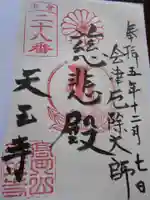 奉拝五年十二月七日
会津厄除大師
慈悲殿
二十八番
天王寺